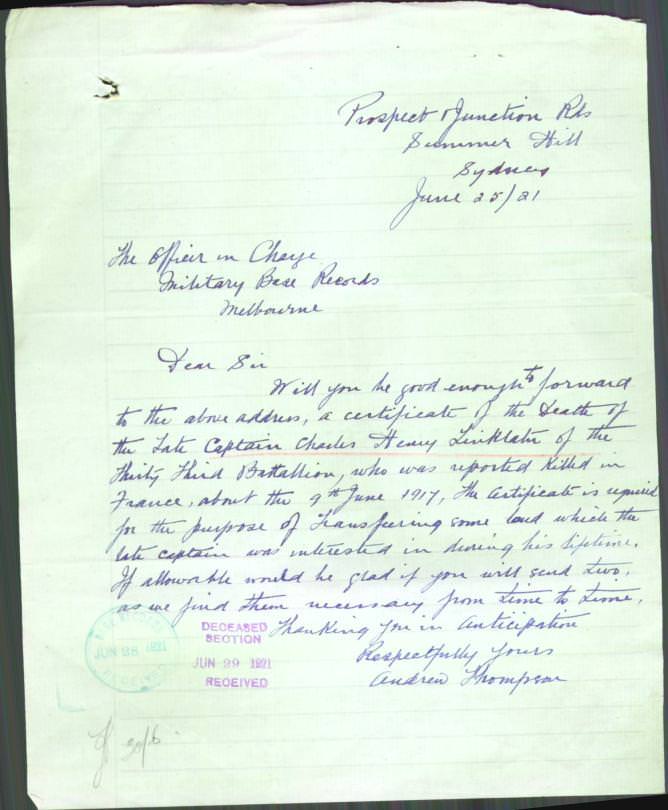 Prospect & Junction Rds
Summer Hill
Sydney
June 25/21
The Officir in Charge
Military Base Records
Melbourne
Dear Sir
Will you be good enough to forward
to the above address, a certificate of the Death of
the Late Captain Charles Henry Linklater of the
Thirty Third Battallion, who was reported Killed in
France, about the 9th June 1917, The Certificate is required
for the purpose of Transfering some land which the
late Captain was interested in during his lifetime.
If allowable would be glad if you will send two,
as we find them necessary from time to time.
Thanking you in anticipation
Respectfully yours
Andrew Thompson
BASE RECORDS
JUN 28 1921
RECEIVED
DECEASED
SECTION
JUN 29 1921
RECEIVED
30/6